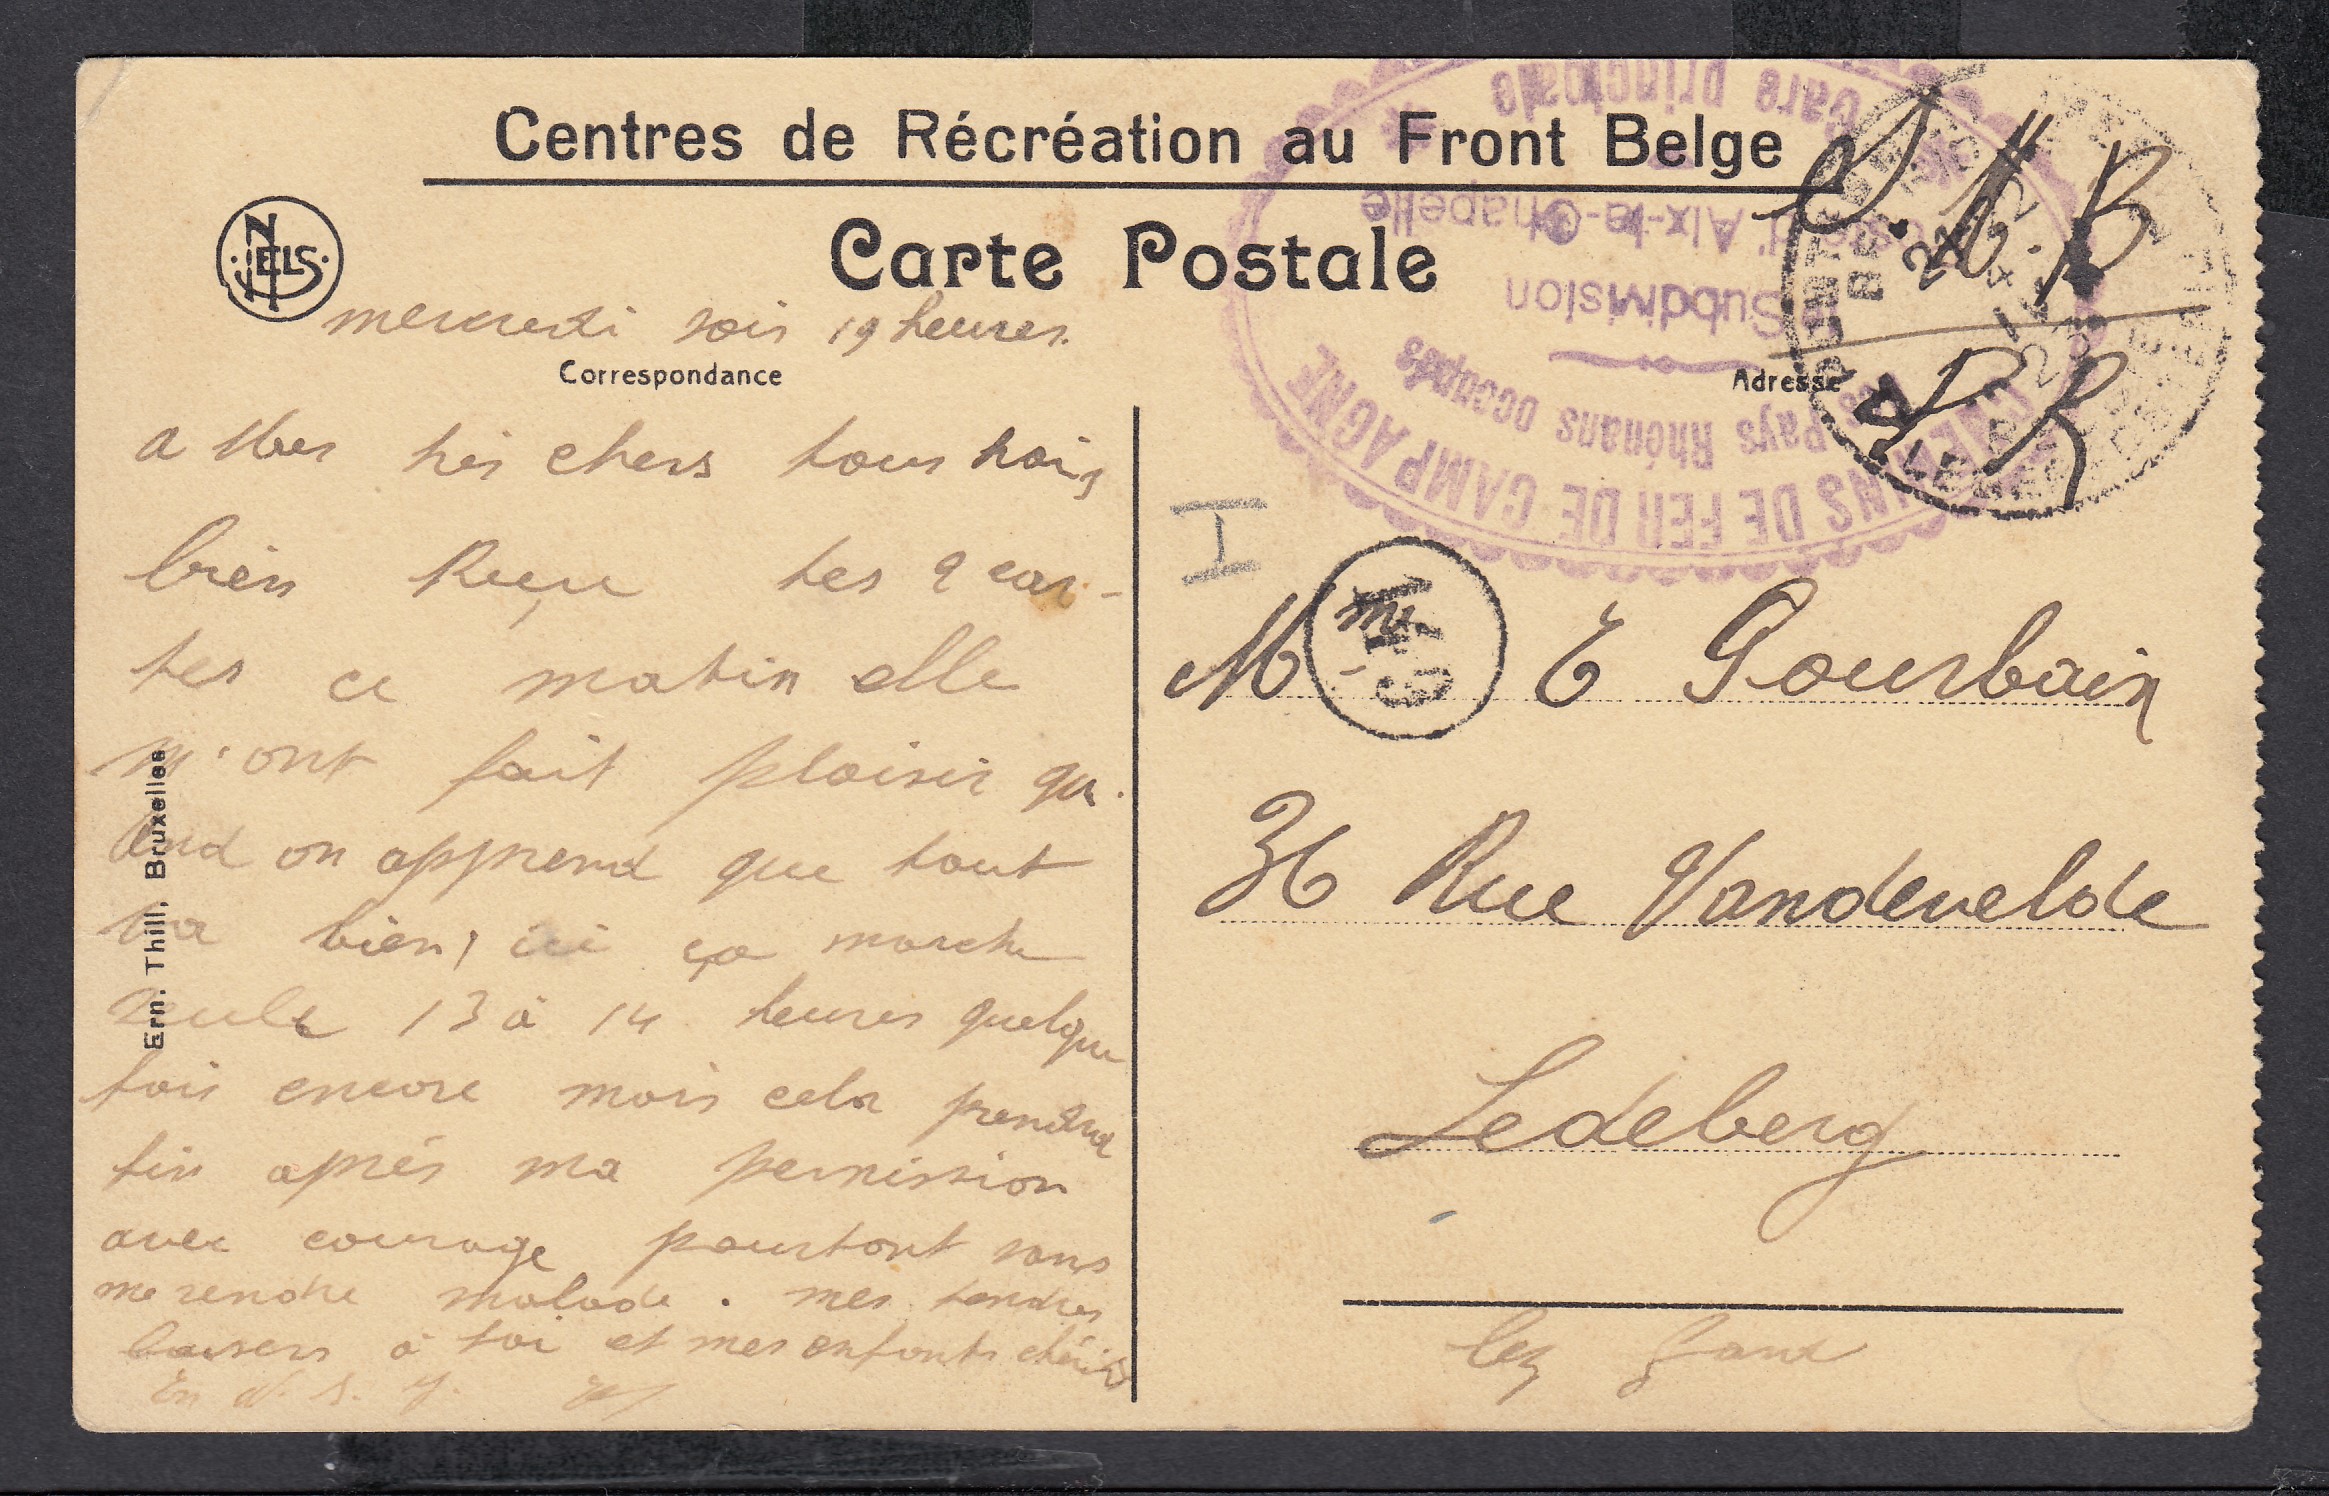 Centres de Récréation au Front Belge
Carte Postale
NELS
mercredi soir 19 heures.
Correspondance
Adresse
a vous très chers tous trois
bien Reçu tes 2 car-
tes ce matin elle
m'ont fait plaisir qu.
and on apprend que tout
va bien, ici ça marche
seule 13 à 14 heures quelque
fois encore mais cela prendra
fin après ma permission
avec courage pourtant sans
me rendre malade. mes tendres
baisers à toi et mes enfants chéris
En N. S. J.
Ern. Thill. Bruxelles
S.M.B
P R
CHEMINS DE FER DE CAMPAGNE
Pays Rhénans occupés
Subdivision
d'Aix-la-Chapelle
Gare principale
I
Mme E Gourbain
36 Rue Vandevelde
Ledeberg
lez gand